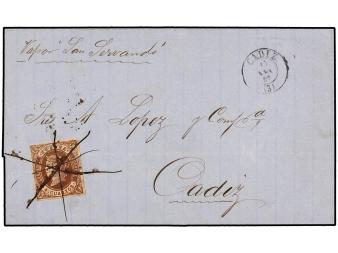 Vapor San Servando
CADIZ
(3)
Sres A Lopez y Comp.a
Cadiz